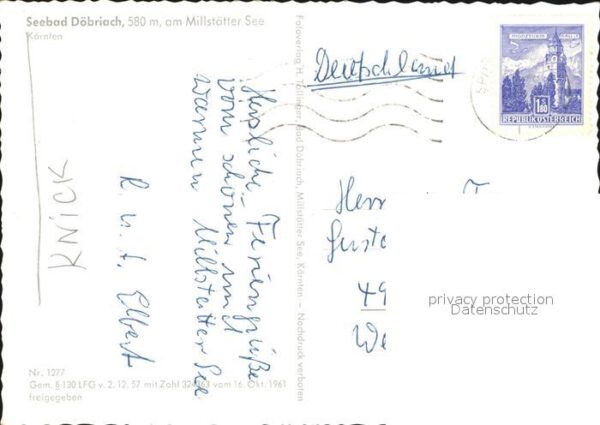 Seebad Döbriach, 580 m, am Millstätter See
Kärnten
Herzliche Feriengrüße
vom schönen und
warmen Millstätter See
R. u. L. Elbert
KNICK
Nr. 1277
Gem. § 130 LFG v. 2. 12. 57 mit Zahl 324263 vom 16. Okt. 1961
freigegeben
Fotoverlag H. Bad Döbriach, Millstätter See, Kärnten – Nachdruck verboten
Deutschland
MÜNZTURM HALL
1.80
REPUBLIK ÖSTERREICH
Herr
Guste
49
We
privacy protection
Datenschutz